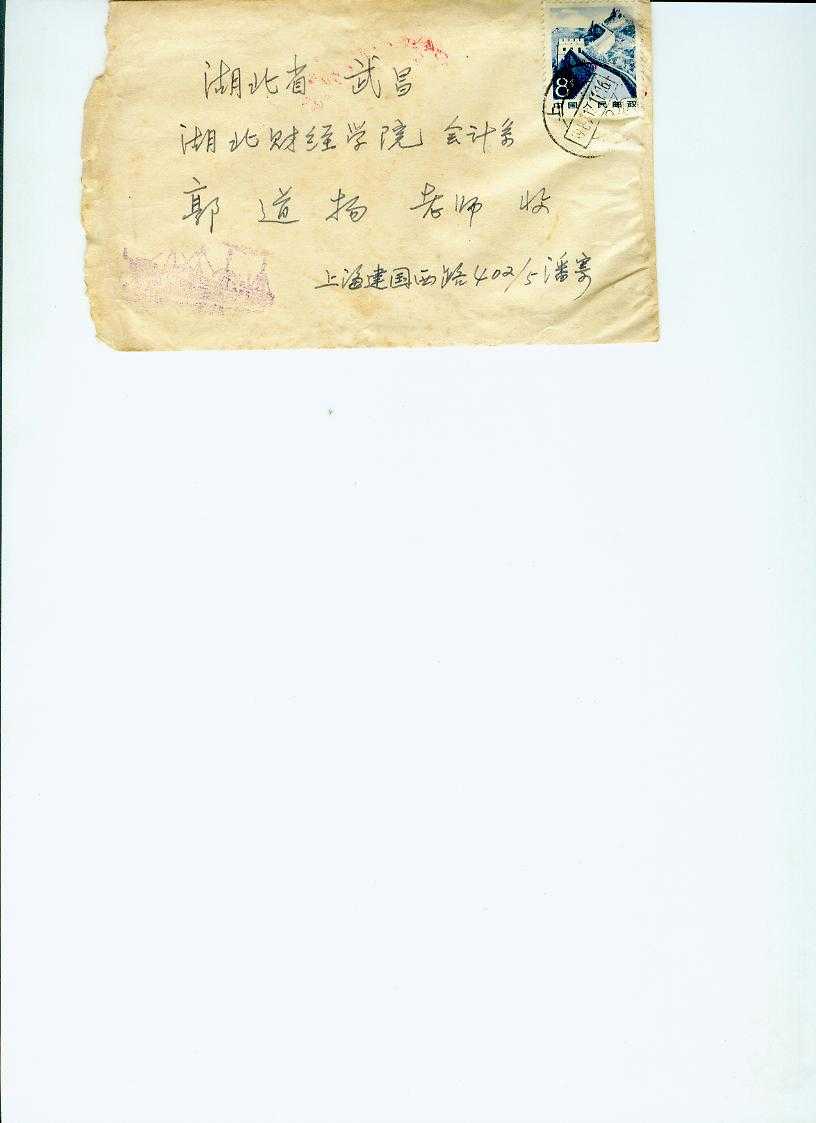 湖北省 武昌
湖北财经学院 会计系
郭 道 扬 老师 收
上海建国西路402/5潘寄
8
中国人民邮政
上